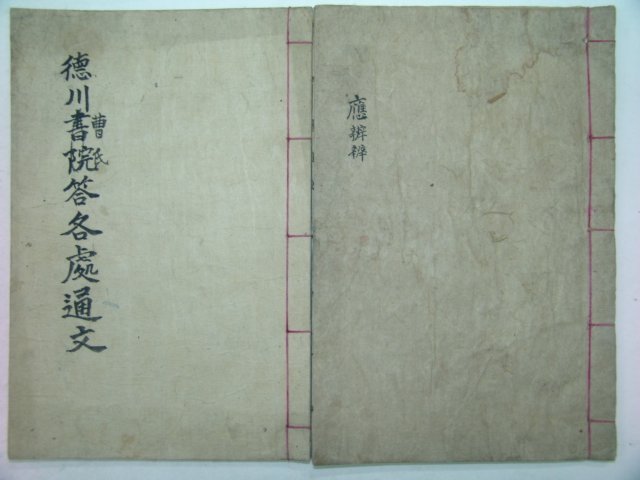 德川書院答各處通文
曺氏
應辨辨